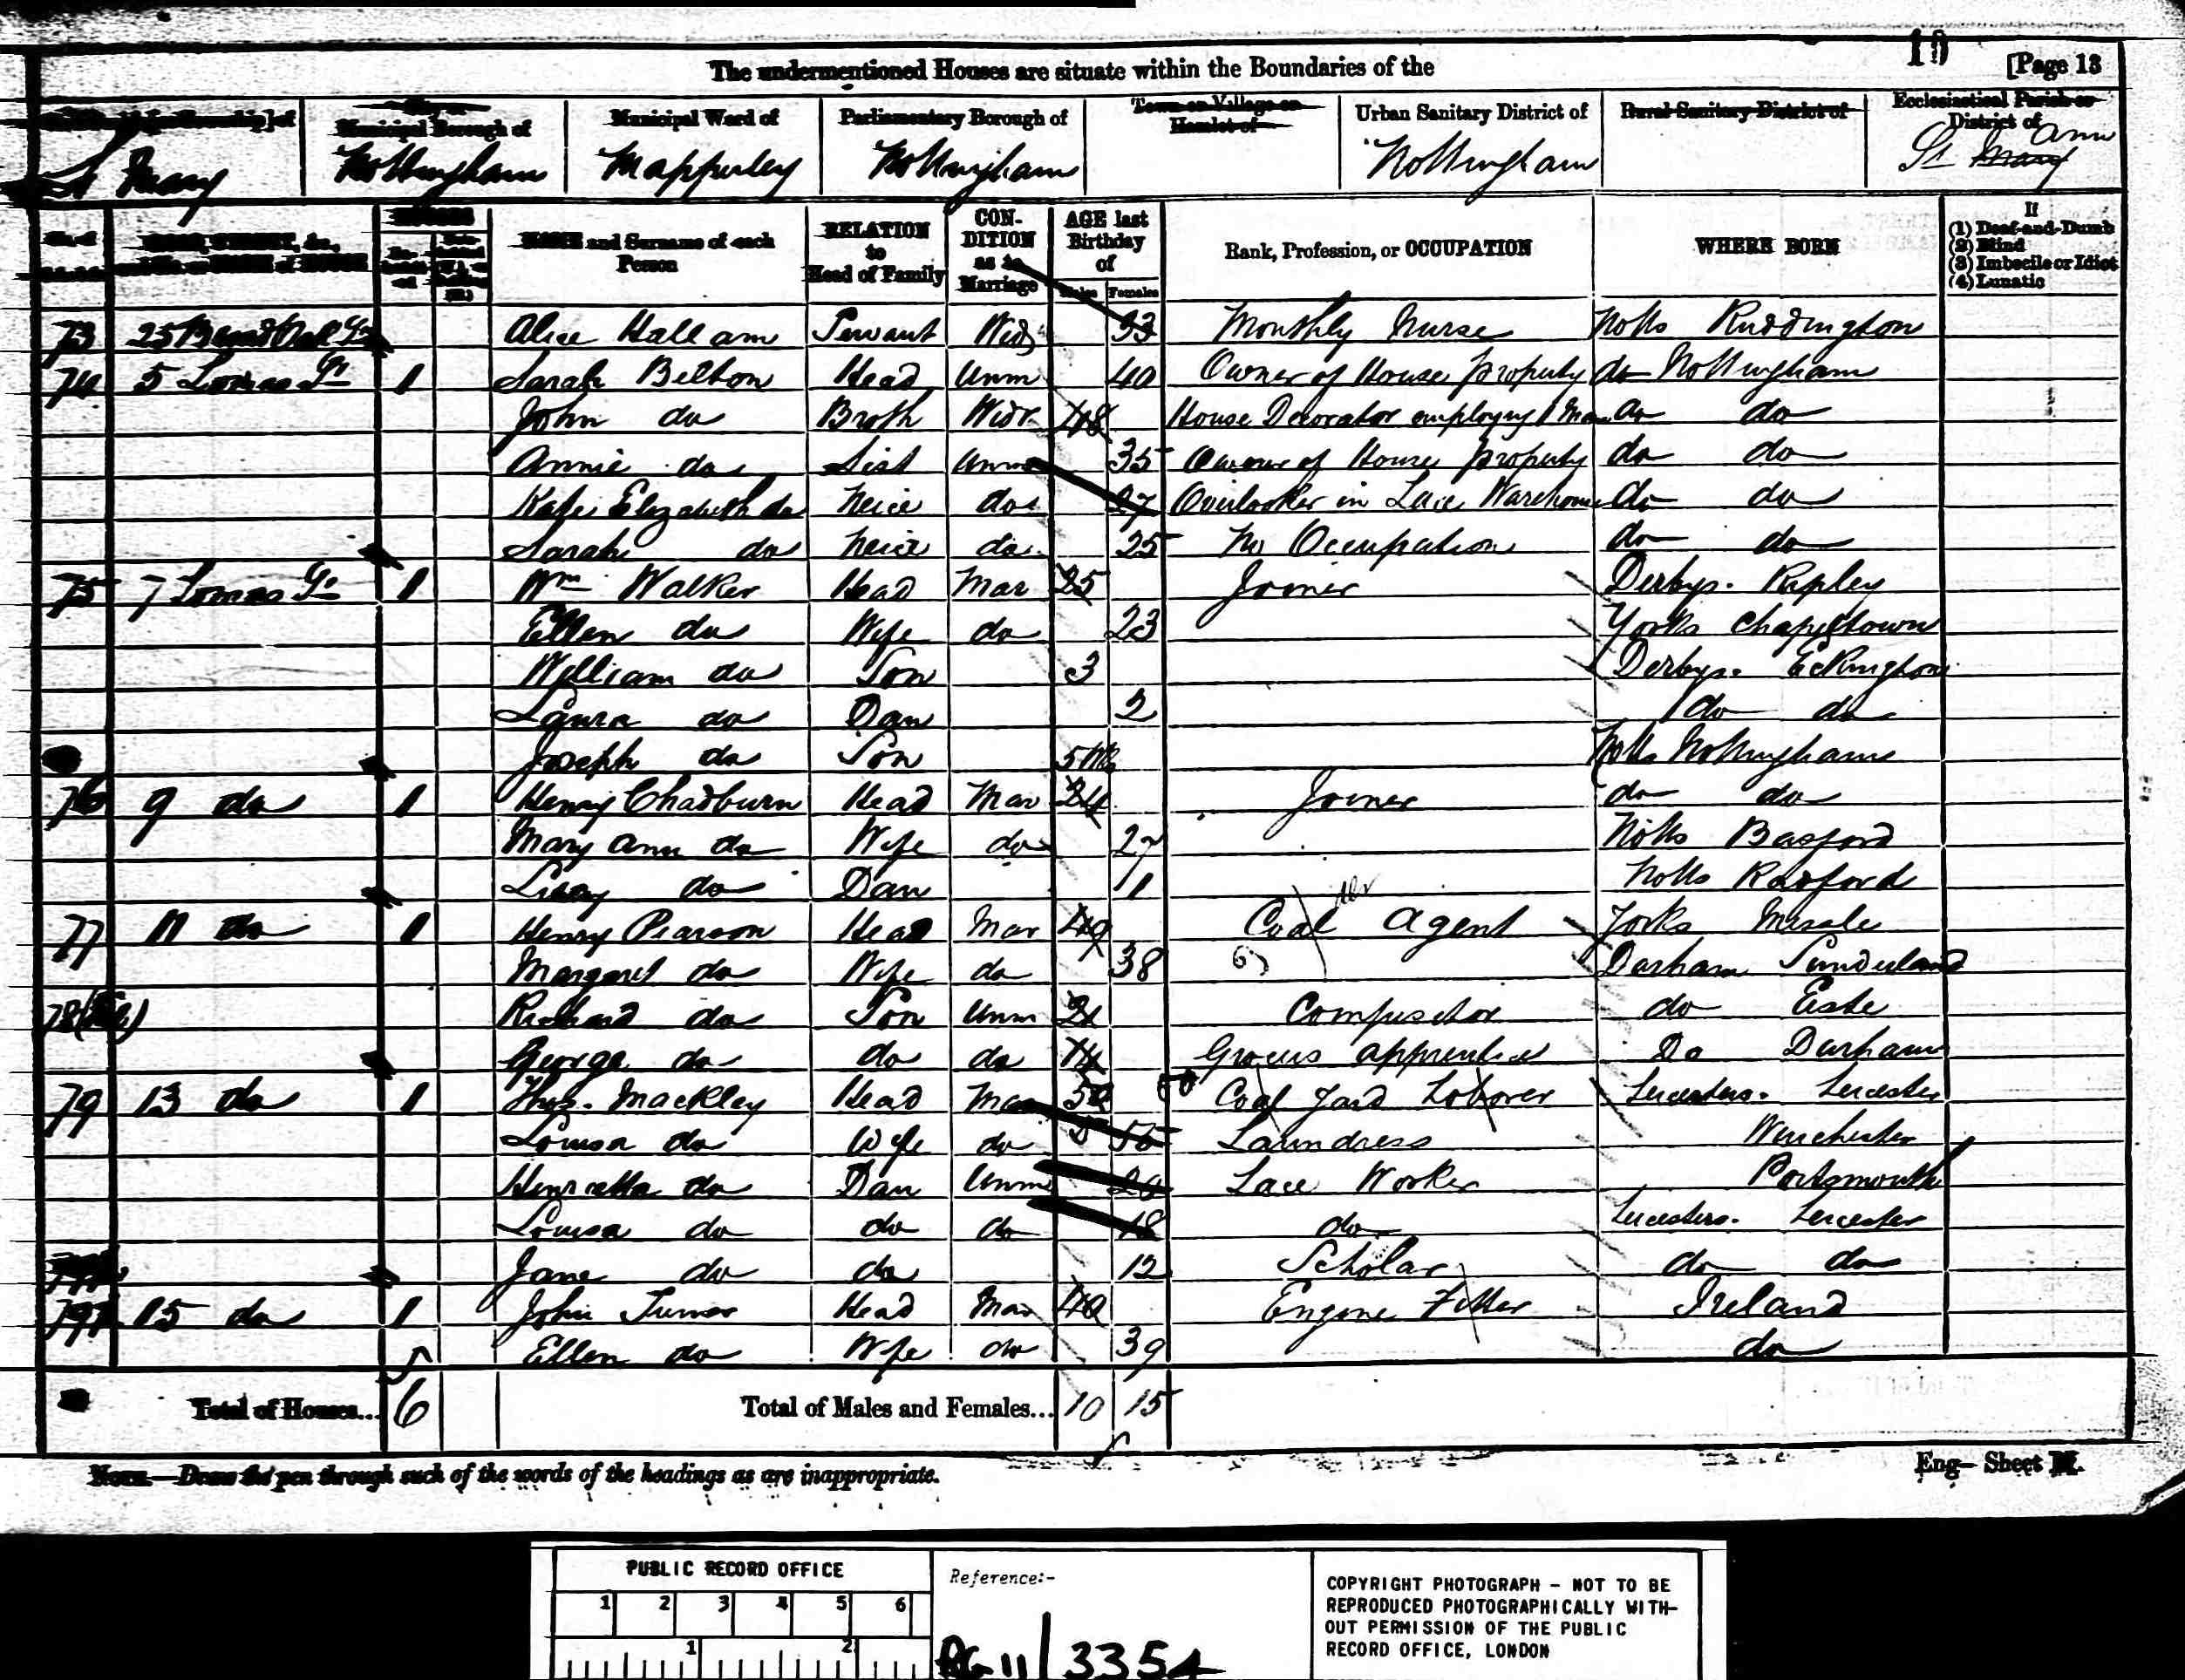 10 [Page 13
The undermentioned Houses are situate within the Boundaries of the
Municipal Borough of Municipal Ward of Parliamentary Borough of Town or Village or Hamlet of Urban Sanitary District of Rural Sanitary District of Ecclesiastical Parish or District of
St Mary Nottingham Mapperley Nottingham Nottingham St Mary Ann
NAME and Surname of each Person RELATION to Head of Family CONDITION as to Marriage AGE last Birthday of Males Females Rank, Profession, or OCCUPATION WHERE BORN If (1) Deaf-and-Dumb (2) Blind (3) Imbecile or Idiot (4) Lunatic
73 25 Alice Hallam Servant Wid 33 Monthly Nurse Notts Ruddington
74 5 Lomas 1 Sarah Belton Head Unm 40 Owner of House property do Nottingham
John do Broth Widr 48 House Decorator employing 1 Man do do
Annie do Sist Unm 35 Owner of House property do do
Kate Elizabeth do Neice do 27 Overlooker in Lace Warehouse do do
Sarah do Neice do 25 No Occupation do do
75 7 Lomas 1 Wm Walker Head Mar 25 Joiner Derbys. Ripley
Ellen do Wife do 23 Yorks Chapeltown
William do Son 3 Derbys. Eckington
Laura do Dau 2 do do
Joseph do Son Notts Nottingham
76 9 do 1 Henry Chadburn Head Mar 24 Joiner do do
Mary Ann do Wife do 27 Notts Basford
do Dau 1 Notts Radford
77 11 do 1 Henry Pearson Head Mar 49 Coal Agent Yorks
Margaret do Wife do 38 Durham Sunderland
78 Richard do Son Unm 21 Compositor do
George do do do 14 Grocers apprentice Do Durham
79 13 do 1 Thos. Mackley Head Mar 50 Coal Yard Laborer Leicesters. Leicester
Louisa do Wife do 50 Laundress Winchester
Henrietta do Dau Unm 20 Lace Worker Portsmouth
Louisa do do do 18 do Leicesters. Leicester
Jane do do 12 Scholar do do
15 do 1 John Turner Head Mar 40 Engine Fitter Ireland
Ellen do Wife do 39 do
Total of Houses... 6 Total of Males and Females... 10 15
NOTE.—Draw the pen through such of the words of the headings as are inappropriate.
Eng— Sheet M.
PUBLIC RECORD OFFICE
1 2 3 4 5 6
1 2
Reference:-
RG 11/3354
COPYRIGHT PHOTOGRAPH - NOT TO BE
REPRODUCED PHOTOGRAPHICALLY WITH-
OUT PERMISSION OF THE PUBLIC
RECORD OFFICE, LONDON